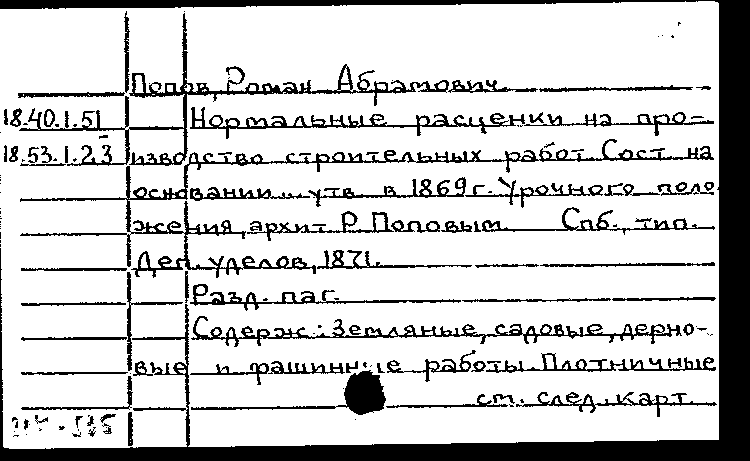 Попов, Роман Абрамович
18.40.1.51 Нормальные расценки на про-
18.53.1.23 изводство строительных работ. Сост. на
основании... утв. в 1869 г. Урочного поло-
жения, архит. Р. Поповым. Спб., тип.
Деп. уделов, 1871.
Разд. паг.
Содерж: Земляные, садовые, дерно-
вые и фашинные работы. Плотничные
см. след. карт.